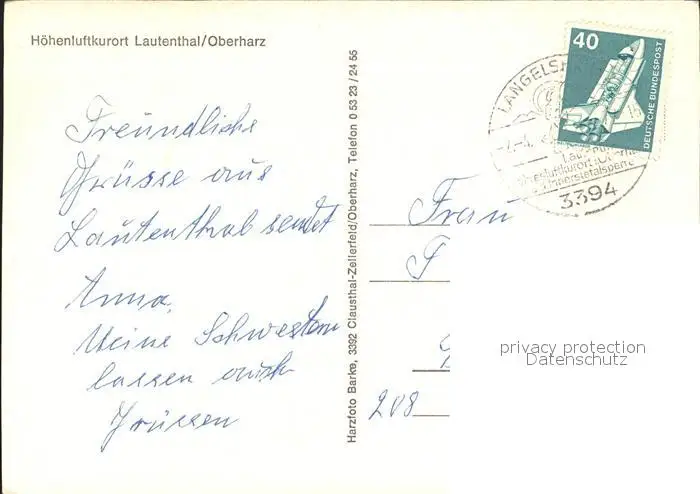 Höhenluftkurort Lautenthal/Oberharz
Freundliche
Grüsse aus
Lautenthal sendet
Anna.
Meine Schwestern
lassen auch
Grüssen
Harzfoto Barke, 3392 Clausthal-Zellerfeld/Oberharz, Telefon 0 53 23 / 24 55
40
DEUTSCHE BUNDESPOST
LANGELSH
3394
Frau
F
208
privacy protection
Datenschutz